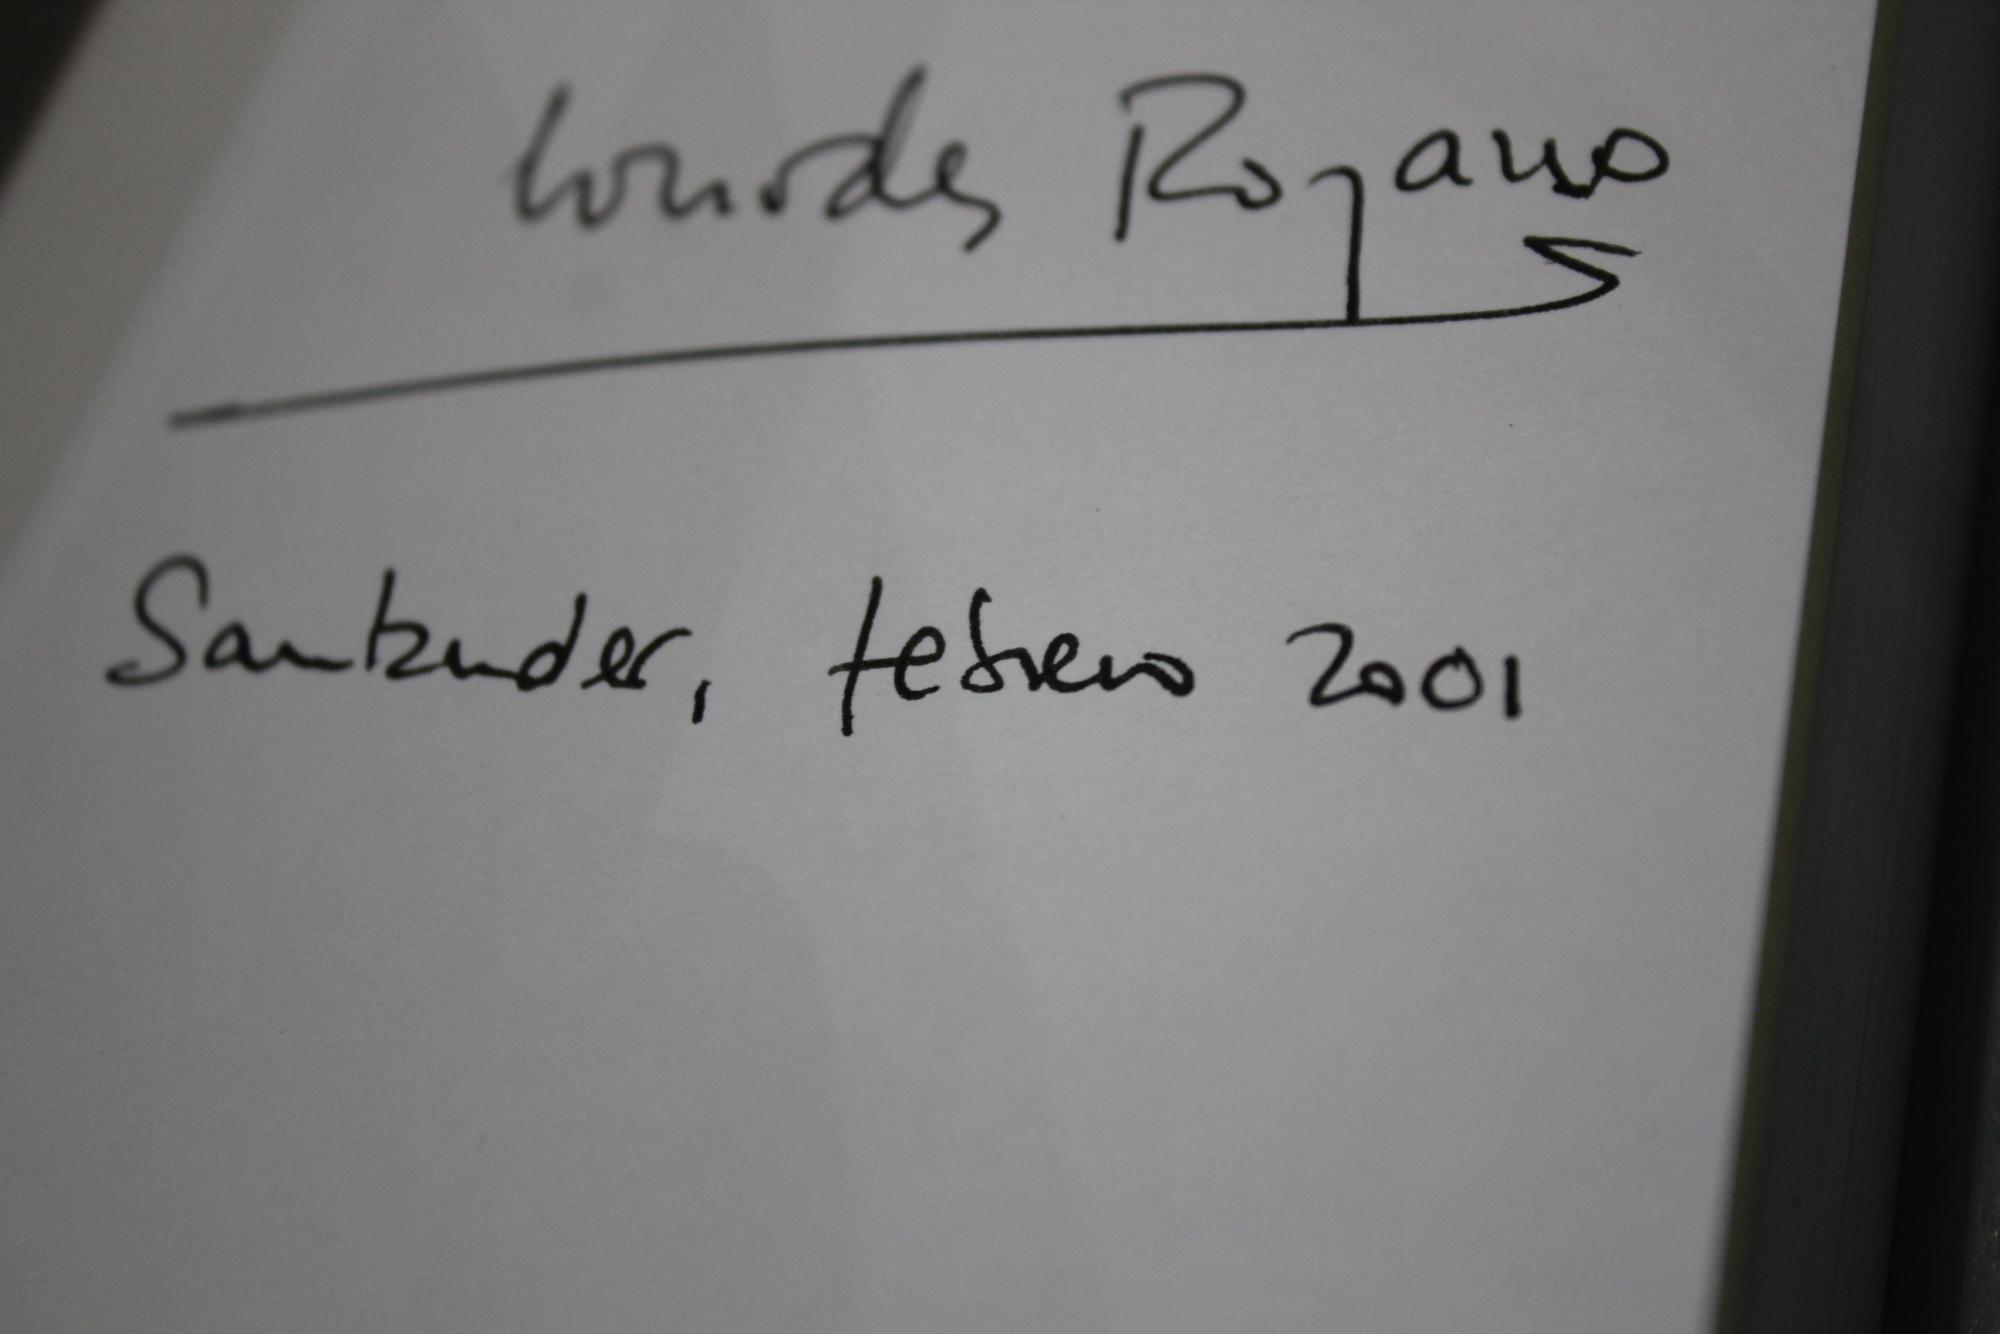 Lourdes Royano
Santander, febrero 2001